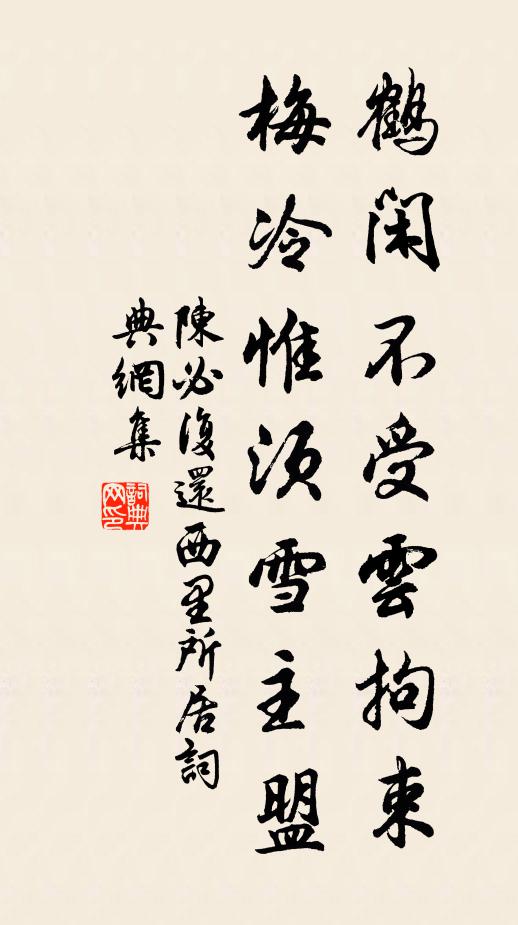 鶴閑不受雲拘束
梅冷惟須雪主盟
陳必復還西里所居詞
典網集
詞典網印